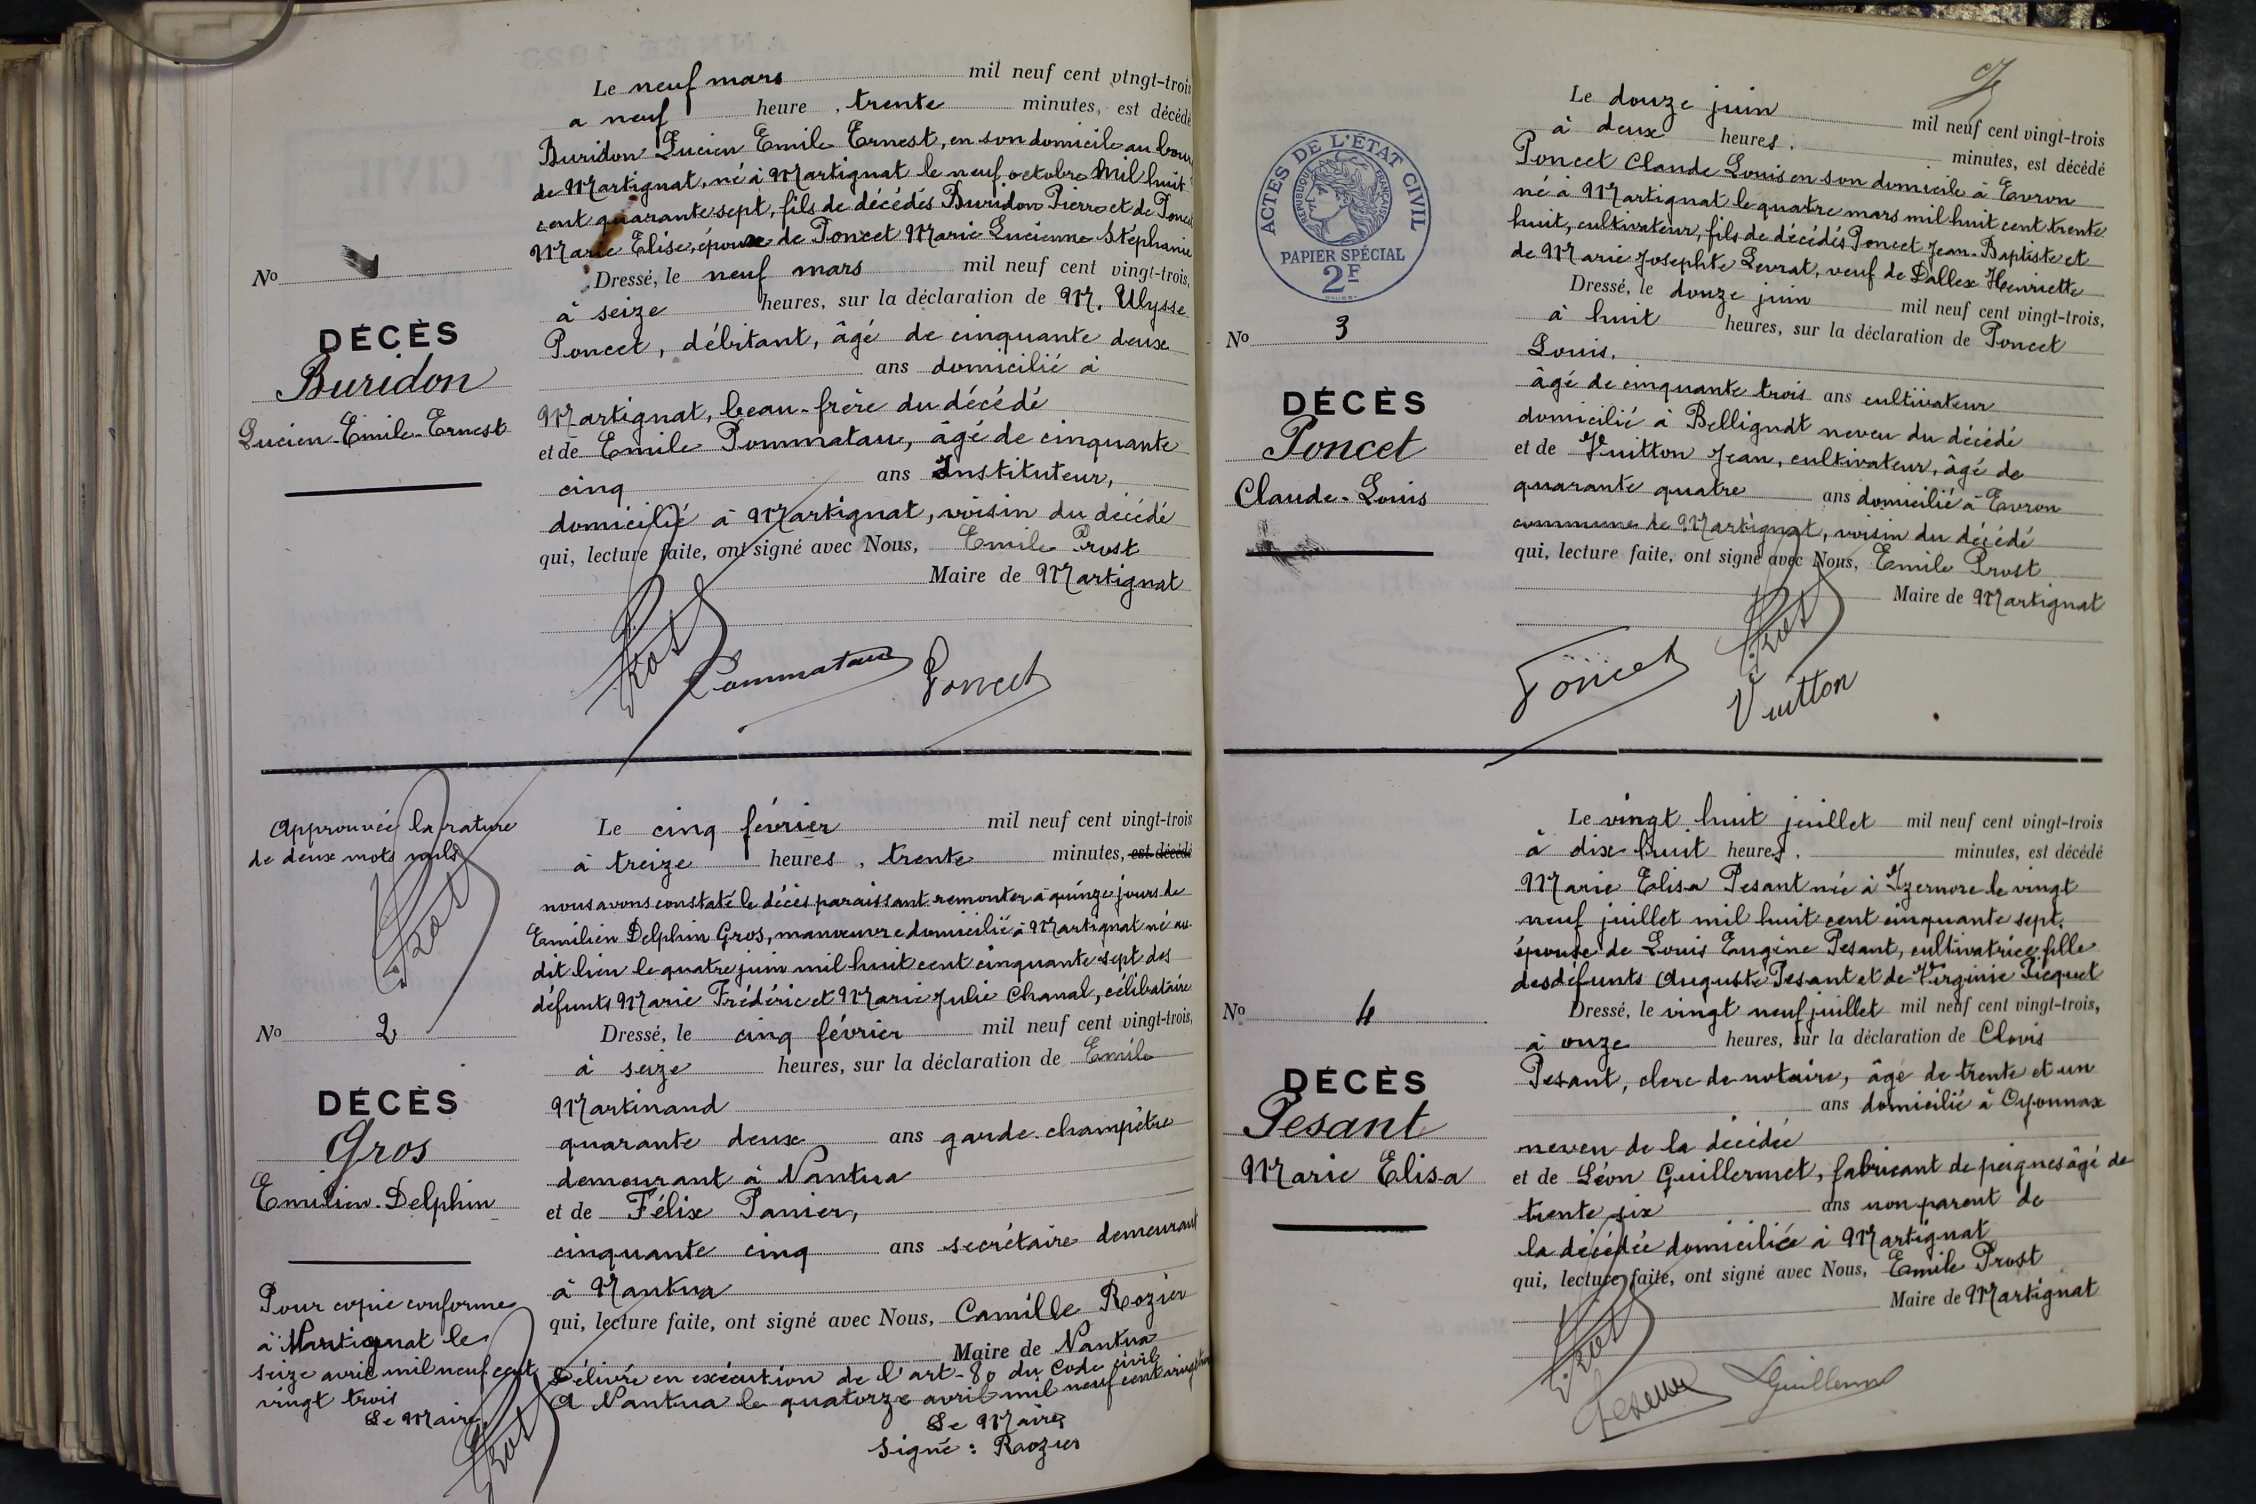 Le neuf mars mil neuf cent vingt-trois
a neuf heure, trente minutes, est décédé
Buridon Lucien Emile Ernest, en son domicile au bourg
de Martignat, né à Martignat le neuf octobre mil huit
cent quarante sept, fils de décédés Buridon Pierre et de Poncet
Marie Elise, époux de Poncet Marie Lucienne Stéphanie
Dressé, le neuf mars mil neuf cent vingt-trois,
à seize heures, sur la déclaration de M. Ulysse
Poncet, débitant, âgé de cinquante deux
ans domicilié à
Martignat, beau-frère du décédé
et de Emile Pommatau, âgé de cinquante
cinq ans Instituteur,
domicilié à Martignat, voisin du décédé
qui, lecture faite, ont signé avec Nous, Emile Prost
Maire de Martignat
Prost Pommatau Poncet
No 1
DÉCÈS
Buridon
Lucien-Emile-Ernest
Approuvée la rature
de deux mots nuls
Prost
No 2
DÉCÈS
Gros
Emilien-Delphin
Pour copie conforme
à Martignat le
seize avril mil neuf cent
vingt trois
Le Maire
Prost
Le cinq février mil neuf cent vingt-trois
à treize heures, trente minutes, est décédé
nous avons constaté le décès paraissant remonter à quinze jours de
Emilien Delphin Gros, manoeuvre domicilié à Martignat né au
dit lieu le quatre juin mil huit cent cinquante sept des
défunts Marie Frédéric et Marie Julie Chanal, célibataire
Dressé, le cinq février mil neuf cent vingt-trois,
à seize heures, sur la déclaration de Emile
Martinand
quarante deux ans garde-champêtre
demeurant à Nantua
et de Félix Panier,
cinquante cinq ans secrétaire demeurant
à Nantua
qui, lecture faite, ont signé avec Nous, Camille Rozier
Maire de Nantua
Délivré en exécution de l'art-80 du Code civil
A Nantua le quatorze avril mil neuf cent vingt trois
Le Maire
Signé : Rozier
ACTES DE L'ÉTAT CIVIL
RÉPUBLIQUE FRANÇAISE
PAPIER SPÉCIAL
2F
No 3
DÉCÈS
Poncet
Claude-Louis
Le douze juin mil neuf cent vingt-trois
à deux heures. minutes, est décédé
Poncet Claude Louis en son domicile à Evron
né à Martignat le quatre mars mil huit cent trente
huit, cultivateur, fils de décédés Poncet Jean-Baptiste et
de Marie Josephte Levrat, veuf de Dallex Henriette
Dressé, le douze juin mil neuf cent vingt-trois,
à huit heures, sur la déclaration de Poncet
Louis.
âgé de cinquante trois ans cultivateur
domicilié à Bellignat neveu du décédé
et de Vuitton Jean, cultivateur, âgé de
quarante quatre ans domicilié à Evron
commune de Martignat, voisin du décédé
qui, lecture faite, ont signé avec Nous, Emile Prost
Maire de Martignat
Poncet Prost
Vuitton
No 4
DÉCÈS
Pesant
Marie Elisa
Le vingt huit juillet mil neuf cent vingt-trois
à dix huit heures. minutes, est décédé
Marie Elisa Pesant née à Izernore le vingt
neuf juillet mil huit cent cinquante sept,
épouse de Louis Eugène Pesant, cultivatrice, fille
des défunts Auguste Pesant et de Virginie Picquet
Dressé, le vingt neuf juillet mil neuf cent vingt-trois,
à onze heures, sur la déclaration de Clovis
Pesant, clerc de notaire, âgé de trente et un
ans domicilié à Oyonnax
neveu de la décédée
et de Léon Guillermet, fabricant de peignes âgé de
trente six ans non parent de
la décédée domicilié à Martignat
qui, lecture faite, ont signé avec Nous, Emile Prost
Maire de Martignat
Prost